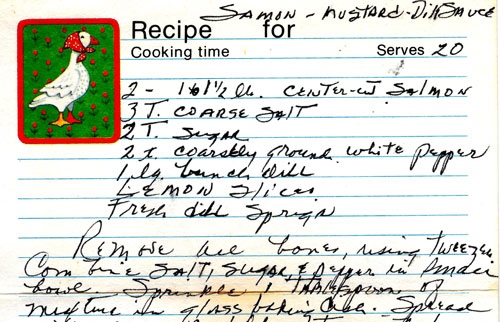 SAMON - MUSTARD-Dill SAUCE
Recipe for
Cooking time Serves 20
2 - 1 lb. CENTER-CUT SALMON
3 T. COARSE SALT
2 T. Sugar
2 t. coarsely ground white pepper
1 lg. bunch dill
LEMON Slices
Fresh dill Sprigs
Remove all bones, using Tweezer
Combine SALT, Sugar & Pepper in small
bowl. Sprinkle 1 Tablespoon of
mixture in glass baking dish. Spread